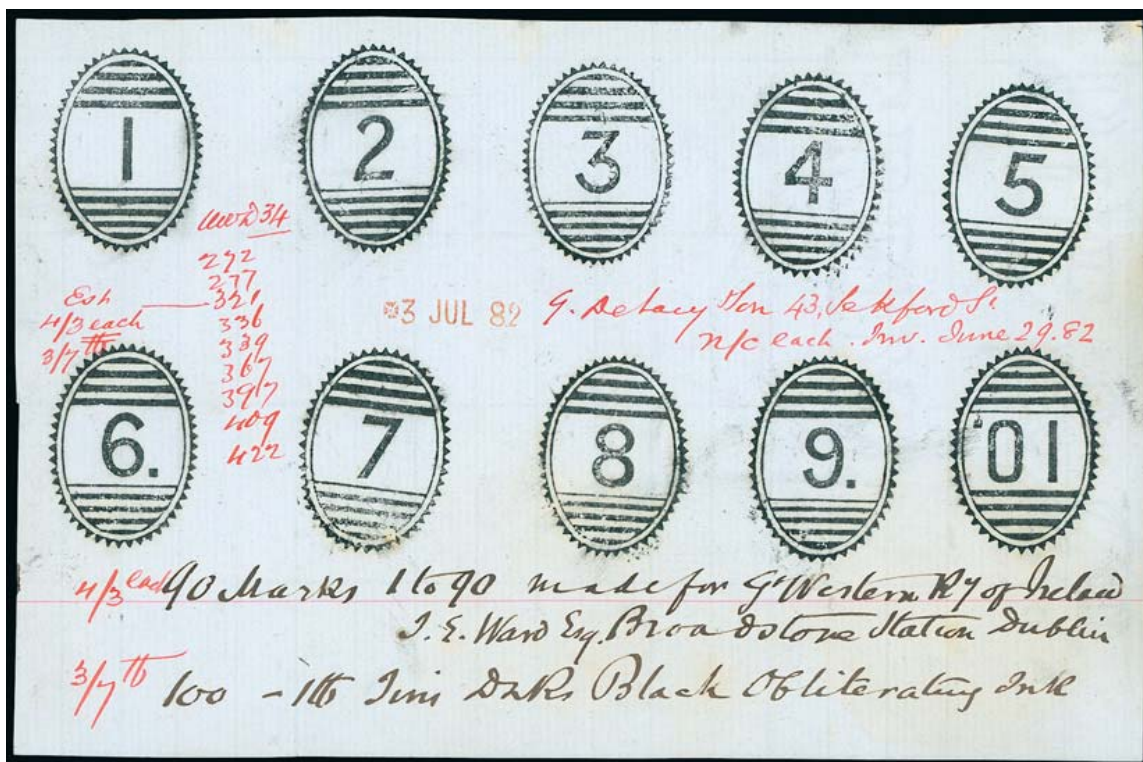 1 2 3 4 5
34
272
277
321
336
339
367
397
409
422
Esh
4/3 each
3/7 lb
3 JUL 82
G. Delacy Son 43, Sekford St.
n/c each. Inv. June 29. 82
6. 7 8 9. '01
4/3 each 90 Marks 1 to 90 made for Gt Western Ry of Ireland
J. E. Ward Esq. Broadstone Station Dublin
3/7 lb 100 - 1lb Tins Black Obliterating Ink